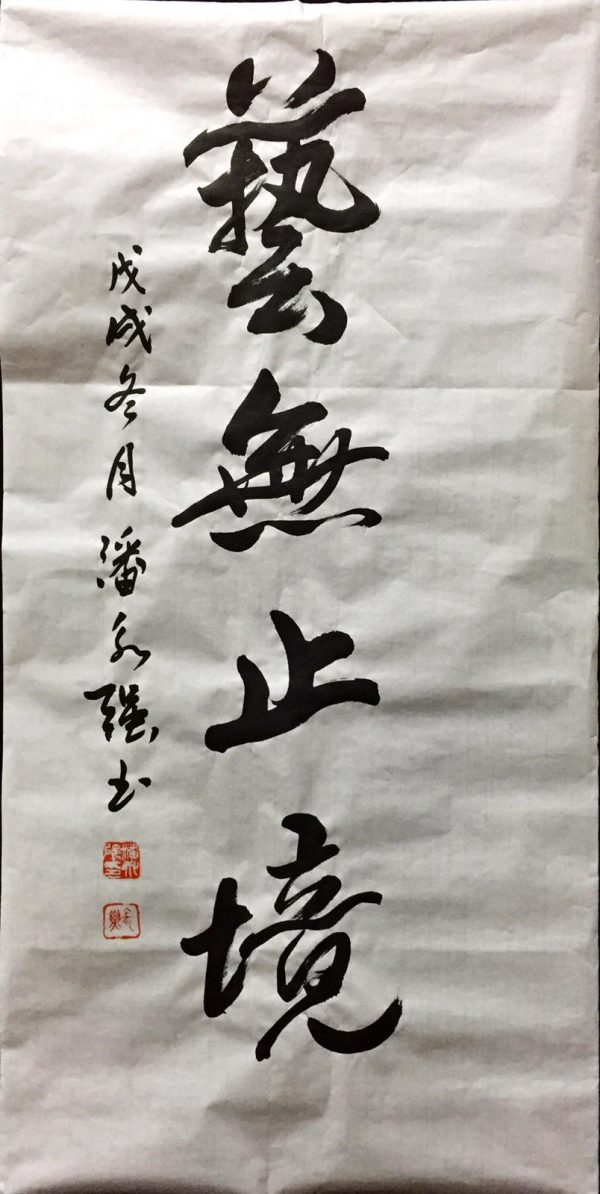 藝無止境
戊戌冬月潘永強书